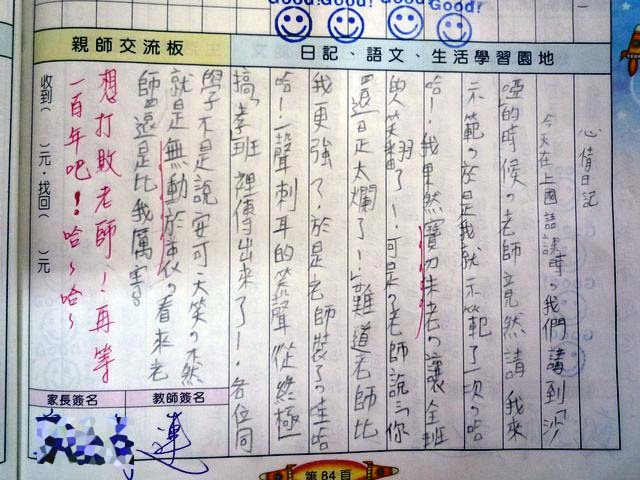 Good! Good! Good! Good!
親師交流板
日記、語文、生活學習園地
心情日記
今天在上國語課時,我們講到「沙
啞」的時候,老師竟然請我來
示範,於是我就示範了一次,哈
哈!我果然寶刀未老,讓全班
與笑翻了!可是,老師說:「你
還是太爛了!」難道老師比
我更強了,於是老師裝了,哇哈
哈!一聲刺耳的聲從終極
搞孝班裡傳出來了!各位同
學不是說安可大笑,不然
就是無動於衷,看來老
師還是比我厲害。
想打敗老師!再等
一百年吧!哈~哈~
收到( )元,找回( )元
家長簽名
教師簽名
連
第84頁